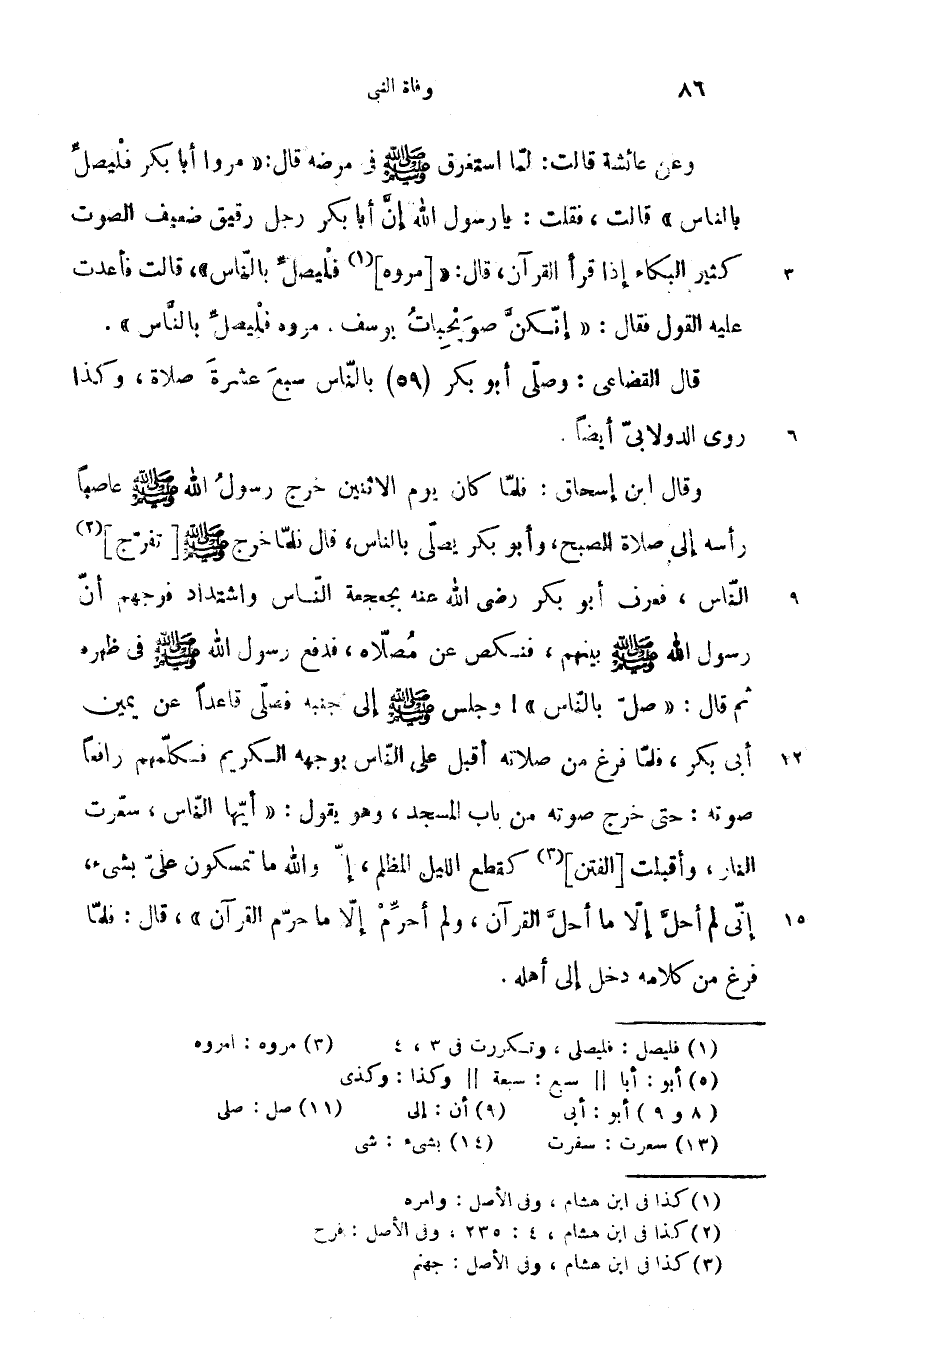 ٨٦ وفاة النبى
وعن عائشة قالت : لمّا استغرق ﷺ فى مرضه قال : « مروا أبا بكر فلْيصلِّ
بالناس » قالت ، فقلت : يا رسول الله إنَّ أبا بكر رجل رقيق ضعيف الصوت
٣ كثير البكاء إذا قرأ القرآن، قال: « [مروه](١) فلْيصلِّ بالنّاس»، قالت فأعدت
عليه القول فقال : « إنّكنَّ صوَيْحِباتُ يوسف . مروه فلْيصلِّ بالنَّاس » .
قال القضاعى : وصلّى أبو بكر (٥٩) بالنّاس سبعَ عشرةَ صلاة ، وكذا
٦ روى الدولابىّ أيضاً .
وقال ابن إسحاق : فلمّا كان يوم الاثنين خرج رسولُ الله ﷺ عاصباً
رأسه إلى صلاة الصبح، وأبو بكر يصلّى بالناس، قال فلمّا خرج ﷺ [ تفرّج ](٢)
٩ النّاس ، فعرف أبو بكر رضى الله عنه بجعجعة النّاس واشتداد فرجهم أنّ
رسول الله ﷺ بينهم ، فنكص عن مُصلّاه ، فدفع رسول الله ﷺ فى ظهره
ثم قال : « صلّ بالنّاس » ! وجلس ﷺ إلى جنبه فصلّى قاعداً عن يمين
١٢ أبى بكر ، فلمّا فرغ من صلاته أقبل على النّاس بوجهه الكريم فكلّمهم رافعاً
صوته : حتى خرج صوته من باب المسجد ، وهو يقول : « أيّها النّاس ، سعّرت
النار ، وأقبلت [الفتن](٣) كقطع الليل المظلم ، إنّى والله ما تمسكون علىّ بشىء،
١٥ إنّى لم أحلَّ إلّا ما أحلَّ القرآن ، ولم أحرِّمْ إلّا ما حرّم القرآن » ، قال : فلمّا
فرغ من كلامه دخل إلى أهله .
(١) فليصل : فليصلى ، وتكررت فى ٣ ، ٤ (٣) مروه : امروه
(٥) أبو : أبا || سبع : سبعة || وكذا : وكذى
( ٨ و ٩ ) أبو : أبى (٩) أن : إلى (١١) صل : صلى
(١٣) سعرت : سفرت (١٤) بشىء : شى
(١) كذا فى ابن هشام ، وفى الأصل : وامره
(٢) كذا فى ابن هشام ، ٤ : ٢٣٥ ، وفى الأصل : فرح
(٣) كذا فى ابن هشام ، وفى الأصل : جهنم